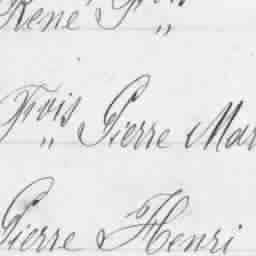 René F „
Fois „ Pierre Mar
Pierre Henri